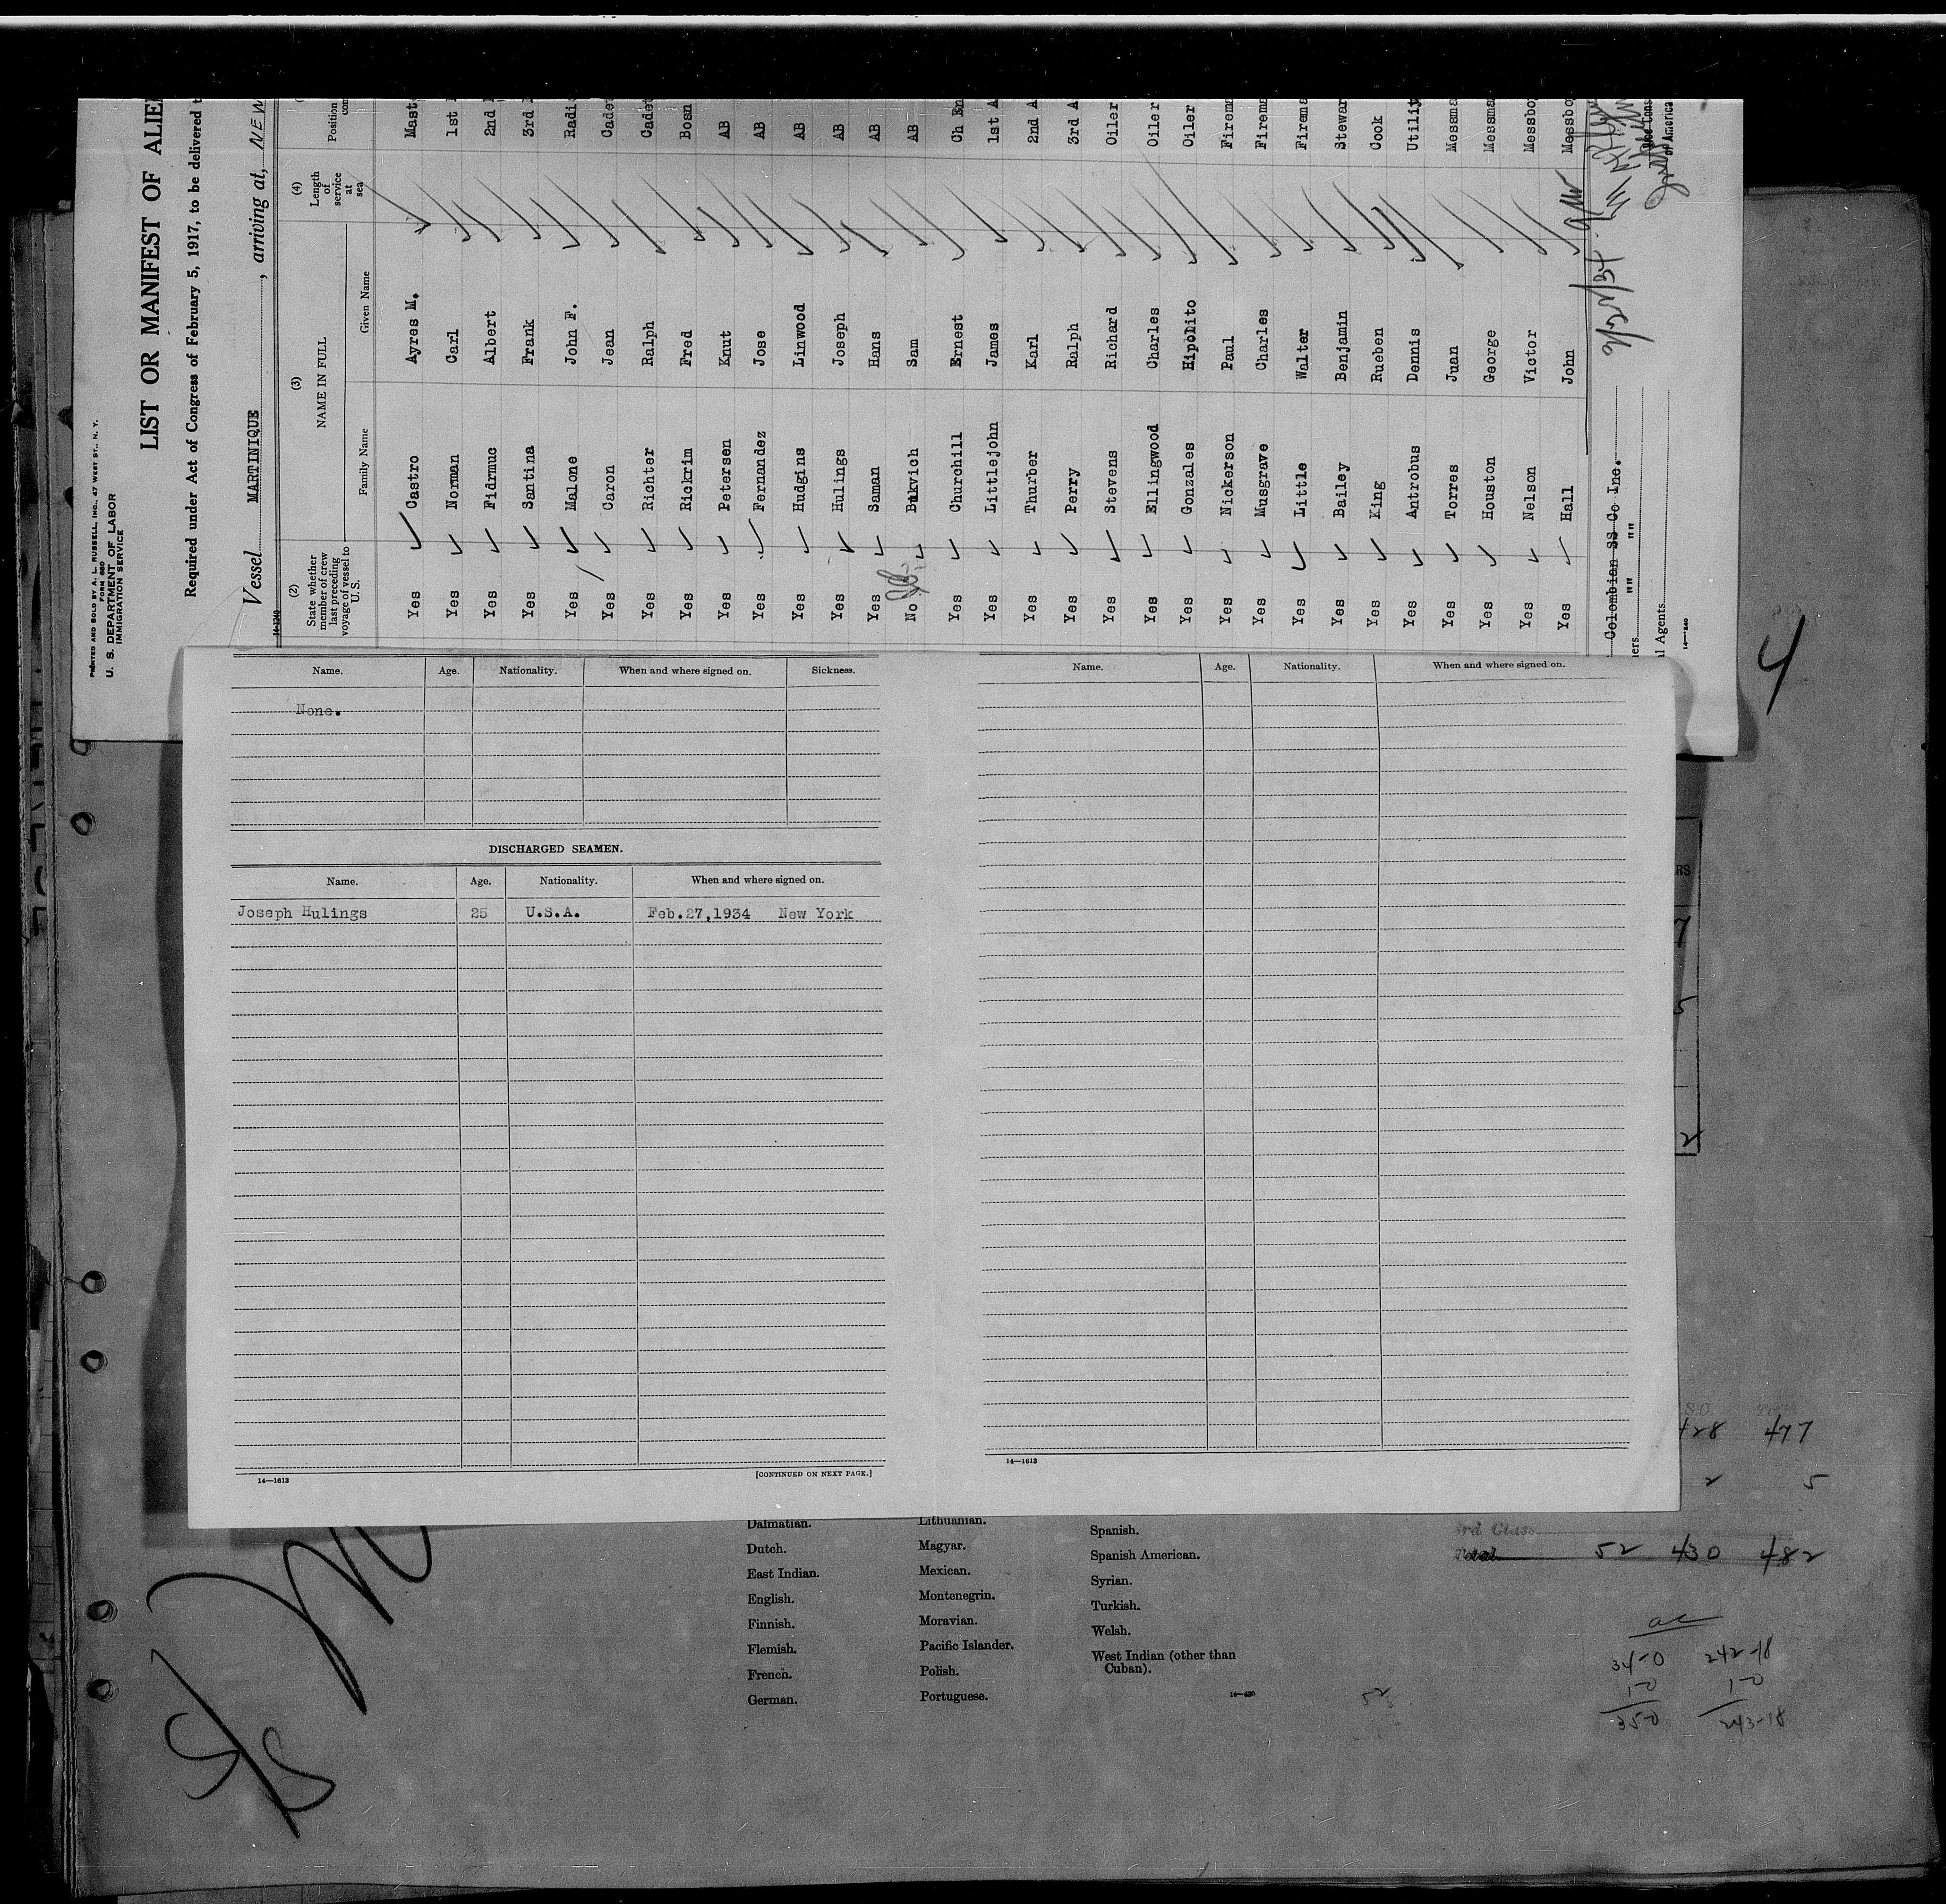 PRINTED AND SOLD BY A. L. RUSSELL, INC., 47 WEST ST., N. Y.
FORM 680
U. S. DEPARTMENT OF LABOR
IMMIGRATION SERVICE
LIST OR MANIFEST OF ALIE
Required under Act of Congress of February 5, 1917, to be delivered t
Vessel MARTINIQUE, arriving at, NEW
14-1240
(2) (3) (4)
State whether member of crew last preceding voyage of vessel to U.S. NAME IN FULL Length of service at sea Position
Family Name Given Name
Yes Castro Ayres M. Maste
Yes Norman Carl 1st
Yes Fidrmuc Albert 2nd
Yes Santina Frank 3rd
Yes Malone John F. Radi
Yes Caron Jean Cadet
Yes Richter Ralph Cadet
Yes Rickrim Fred Bosn
Yes Petersen Knut AB
Yes Fernandez Jose AB
Yes Hudgins Linwood AB
Yes Hulings Joseph AB
Yes Saman Hans AB
No Bukvich Sam AB
Yes Churchill Ernest Ch En
Yes Littlejohn James 1st A
Yes Thurber Karl 2nd A
Yes Perry Ralph 3rd A
Yes Stevens Richard Oiler
Yes Ellingwood Charles Oiler
Yes Gonzales Hipolito Oiler
Yes Nickerson Paul Firem
Yes Musgrave Charles Firema
Yes Little Walter Firema
Yes Bailey Benjamin Stewar
Yes King Rueben Cook
Yes Antrobus Dennis Utility
Yes Torres Juan Messma
Yes Houston George Messma
Yes Nelson Victor Messbo
Yes Hall John Messbo
Colombian SS Co Inc.
ers " "
l Agents
14-240
of America
4
Name. Age. Nationality. When and where signed on. Sickness.
None.
DISCHARGED SEAMEN.
Name. Age. Nationality. When and where signed on.
Joseph Hulings 25 U.S.A. Feb.27,1934 New York
14—1613 [CONTINUED ON NEXT PAGE.]
Name. Age. Nationality. When and where signed on.
14—1613
RS
428 477
2 5
3rd Class
Total 52 430 482
34-0 242-18
1-0 1-0
35-0 243-18
52
Dalmatian.
Dutch.
East Indian.
English.
Finnish.
Flemish.
French.
German.
Lithuanian.
Magyar.
Mexican.
Montenegrin.
Moravian.
Pacific Islander.
Polish.
Portuguese.
Spanish.
Spanish American.
Syrian.
Turkish.
Welsh.
West Indian (other than
Cuban).